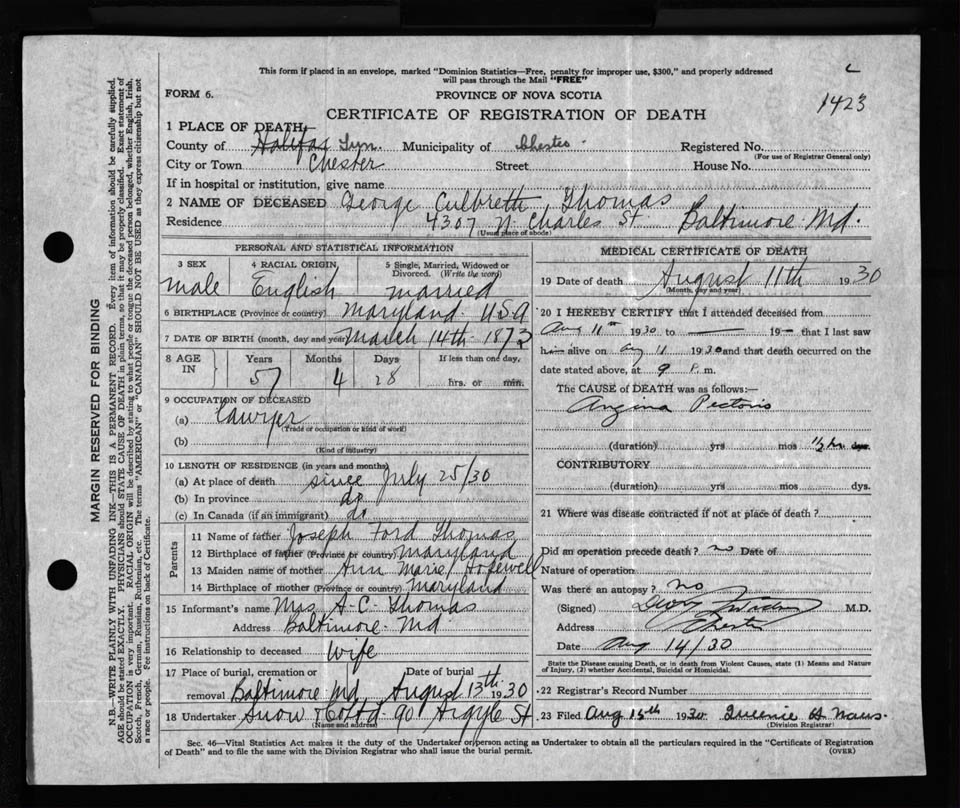 This form if placed in an envelope, marked "Dominion Statistics—Free, penalty for improper use, $300," and properly addressed
will pass through the Mail "FREE"
FORM 6.
PROVINCE OF NOVA SCOTIA
1423
CERTIFICATE OF REGISTRATION OF DEATH
1 PLACE OF DEATH,
County of Halifax Lun. Municipality of Chester. Registered No.
(For use of Registrar General only)
City or Town Chester Street House No.
If in hospital or institution, give name
2 NAME OF DECEASED George Culbreth Thomas
Residence 4307 N. Charles St Baltimore Md.
(Usual place of abode)
PERSONAL AND STATISTICAL INFORMATION
3 SEX male
4 RACIAL ORIGIN English
5 Single, Married, Widowed or Divorced. (Write the word) married
6 BIRTHPLACE (Province or country) Maryland. USA
7 DATE OF BIRTH (month, day and year) March 14th. 1873
8 AGE IN Years Months Days If less than one day,
57 4 28 hrs. or min.
9 OCCUPATION OF DECEASED
(a) Lawyer
(Trade or occupation or kind of work)
(b)
(Kind of industry)
10 LENGTH OF RESIDENCE (in years and months)
(a) At place of death since July 25/30
(b) In province do
(c) In Canada (if an immigrant) do
Parents
11 Name of father Joseph Ford Thomas
12 Birthplace of father (Province or country) Maryland
13 Maiden name of mother Ann Marie Hopewell
14 Birthplace of mother (Province or country) Maryland
15 Informant's name Mrs. A. C. Thomas
Address Baltimore. Md
16 Relationship to deceased Wife
17 Place of burial, cremation or removal Baltimore Md, Date of burial August 13th 1930
18 Undertaker Snow & Co Ltd 90 Argyle St
(Name and address)
MEDICAL CERTIFICATE OF DEATH
19 Date of death August 11th 1930
(Month, day and year)
20 I HEREBY CERTIFY that I attended deceased from
Aug 11th 1930 to — 19— that I last saw
him alive on Aug 11 1930 and that death occurred on the
date stated above, at 9 P. m.
The CAUSE of DEATH was as follows:—
Angina Pectoris
(duration) yrs mos ½ hr dys.
CONTRIBUTORY
(duration) yrs. mos dys.
21 Where was disease contracted if not at place of death?
Did an operation precede death? no Date of
Nature of operation
Was there an autopsy? no
(Signed) M.D.
Address Chester
Date Aug 14/30
State the Disease causing Death, or in death from Violent Causes, state (1) Means and Nature
of Injury, (2) whether Accidental, Suicidal or Homicidal.
22 Registrar's Record Number
23 Filed Aug 15th 1930 Queenie
(Division Registrar)
Sec. 46—Vital Statistics Act makes it the duty of the Undertaker or person acting as Undertaker to obtain all the particulars required in the "Certificate of Registration
of Death" and to file the same with the Division Registrar who shall issue the burial permit. (OVER)
MARGIN RESERVED FOR BINDING
N.B.—WRITE PLAINLY WITH UNFADING INK—THIS IS A PERMANENT RECORD. Every item of information should be carefully supplied.
AGE should be stated EXACTLY. PHYSICIANS should STATE CAUSE OF DEATH in plain terms, so that it may be properly classified. Exact statement of
OCCUPATION is very important. RACIAL ORIGIN will be described by stating to what people or tongue the deceased person belonged, whether English, Irish,
Scotch, French, German, Russian, Ruthenian, etc. The terms "AMERICAN" or "CANADIAN" SHOULD NOT BE USED as they express citizenship but not
a race or people. Fee instructions on back of Certificate.